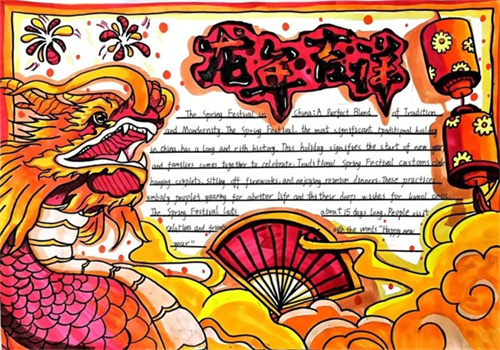 龙年吉祥
The Spring Festival in China: A Perfect Blend of Tradition
and Mondernity. The Spring Festival, the most significant traditional holiday
in china, has a long and rith history. This holiday signifies the start of new year
and families comes together to celebrate. Traditional Spring Festival customs
hanging couplets, sitting off fireworks, and enjoying reunion dinners. These practices
embody people's for life and their deep wishes for loved ones.
The Spring Festival lasts about 15 days long. People visit
relatives and friends with the words "Happy new
year"